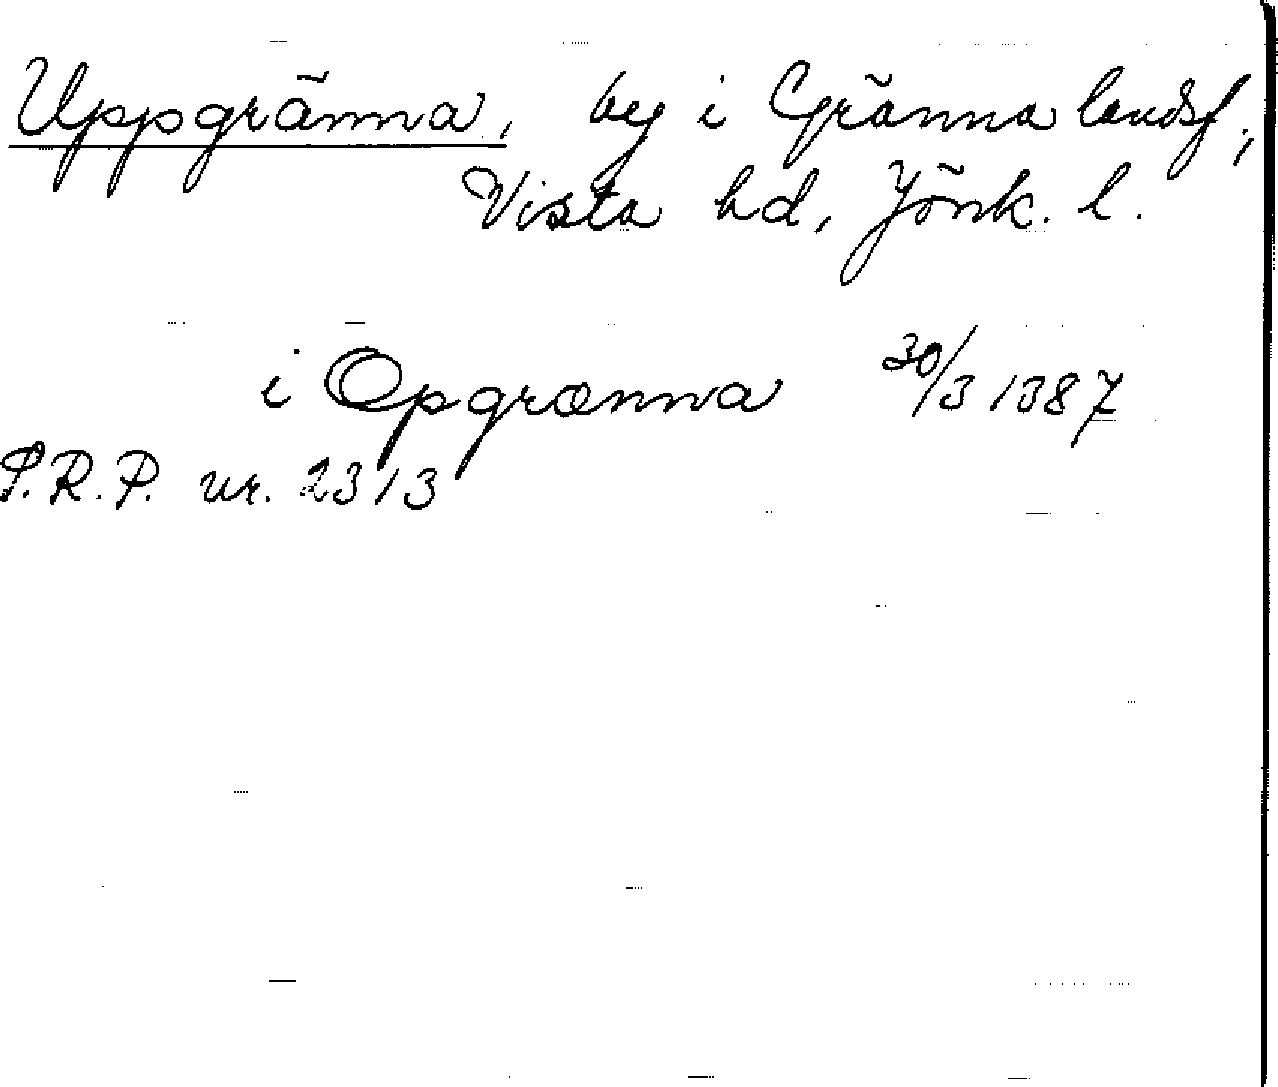 Uppgränna, by i Gränna landsf.,
Vista hd, Jönk. l.
i Opgrænna 30/3 1387
P.R.P. nr. 2313